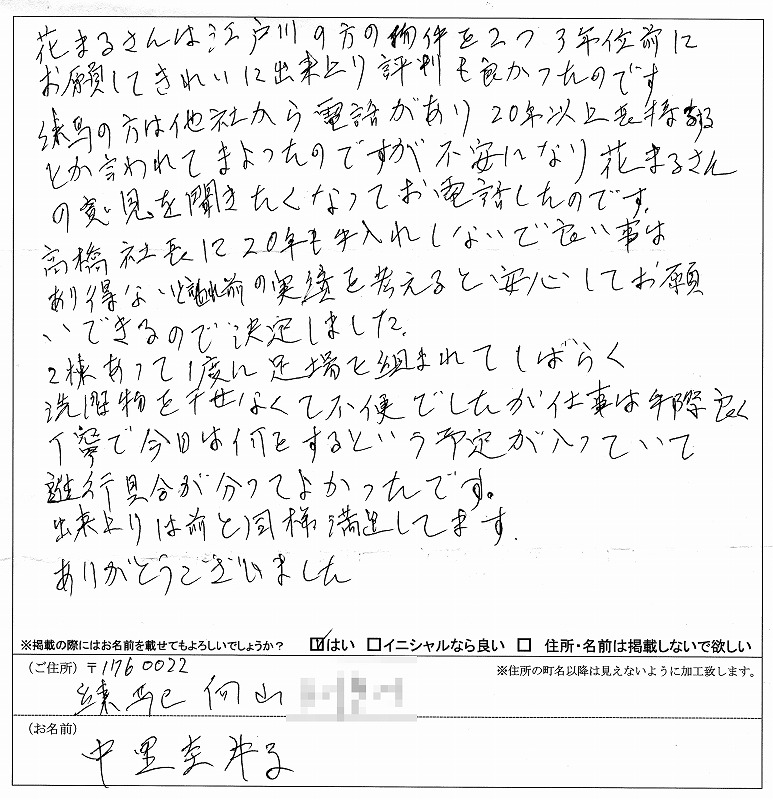 花まるさんは江戸川の方の物件を2つ3年位前に
お願してきれいに出来上り評判も良かったのです
練馬の方は他社から電話があり20年以上長持する
とか言われてまよったのですが不安になり花まるさん
の意見を聞きたくなってお電話したのです。
高橋社長に20年も手入れしないで良い事は
あり得ないと言われ前の実績を考えると安心してお願
いできるので決定しました。
2棟あって1度に足場を組まれてしばらく
洗濯物を干せなくて不便でしたが仕事は手際良く
丁寧で今日は何をするという予定が入っていて
進行具合が分ってよかったんです。
出来上りは前と同様満足してます。
ありがとうございました
※掲載の際にはお名前を載せてもよろしいでしょうか？ ☑はい □イニシャルなら良い □ 住所・名前は掲載しないで欲しい
（ご住所）〒1760022 ※住所の町名以降は見えないように加工致します。
練馬区向山
（お名前）
中里